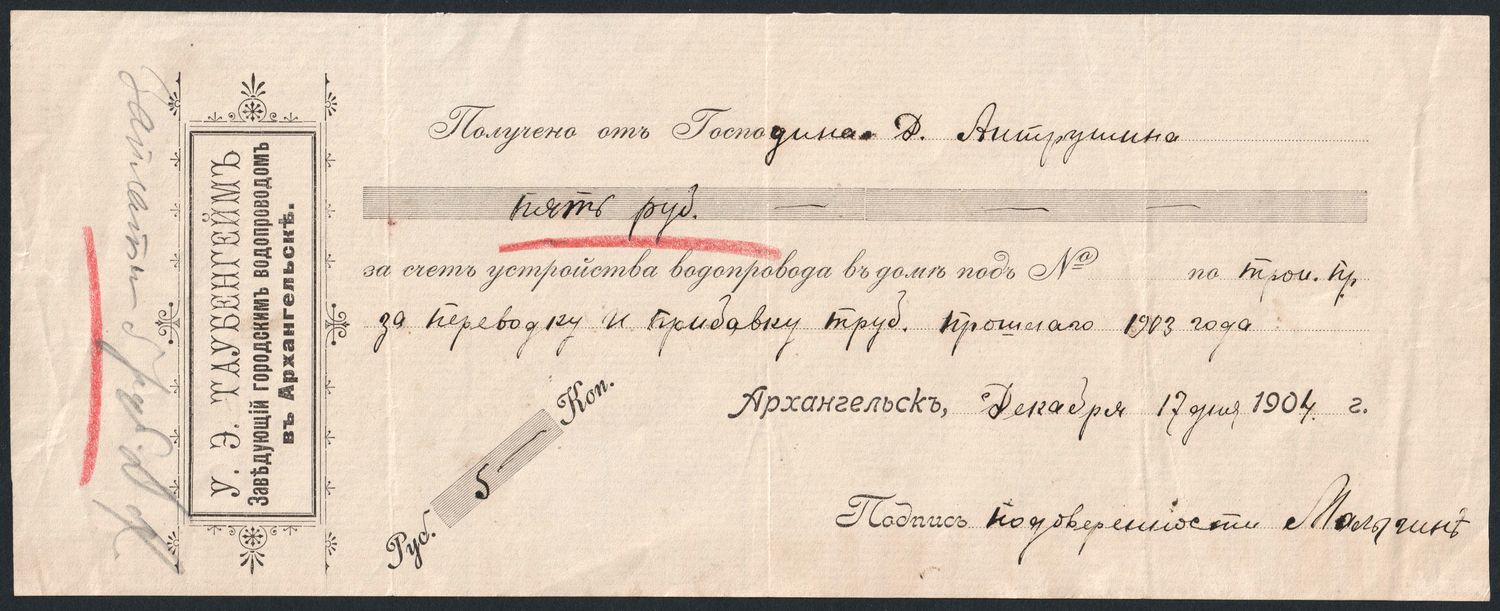 Заплатить 5 руб.
У. Э. ТАУБЕНГЕЙМЪ
Завѣдующій городскимъ водопроводомъ
въ Архангельскѣ.
Получено отъ Господина Д. Антрушина
пять руб. — — —
за счетъ устройства водопровода въ домѣ подъ № по трои. пр
за переводку и прибавку труб. прошлаго 1903 года
Архангельскъ, Декабря 17 дня 1904 г.
Руб. 5 — Коп.
Подпись по доверенности Малыгинъ